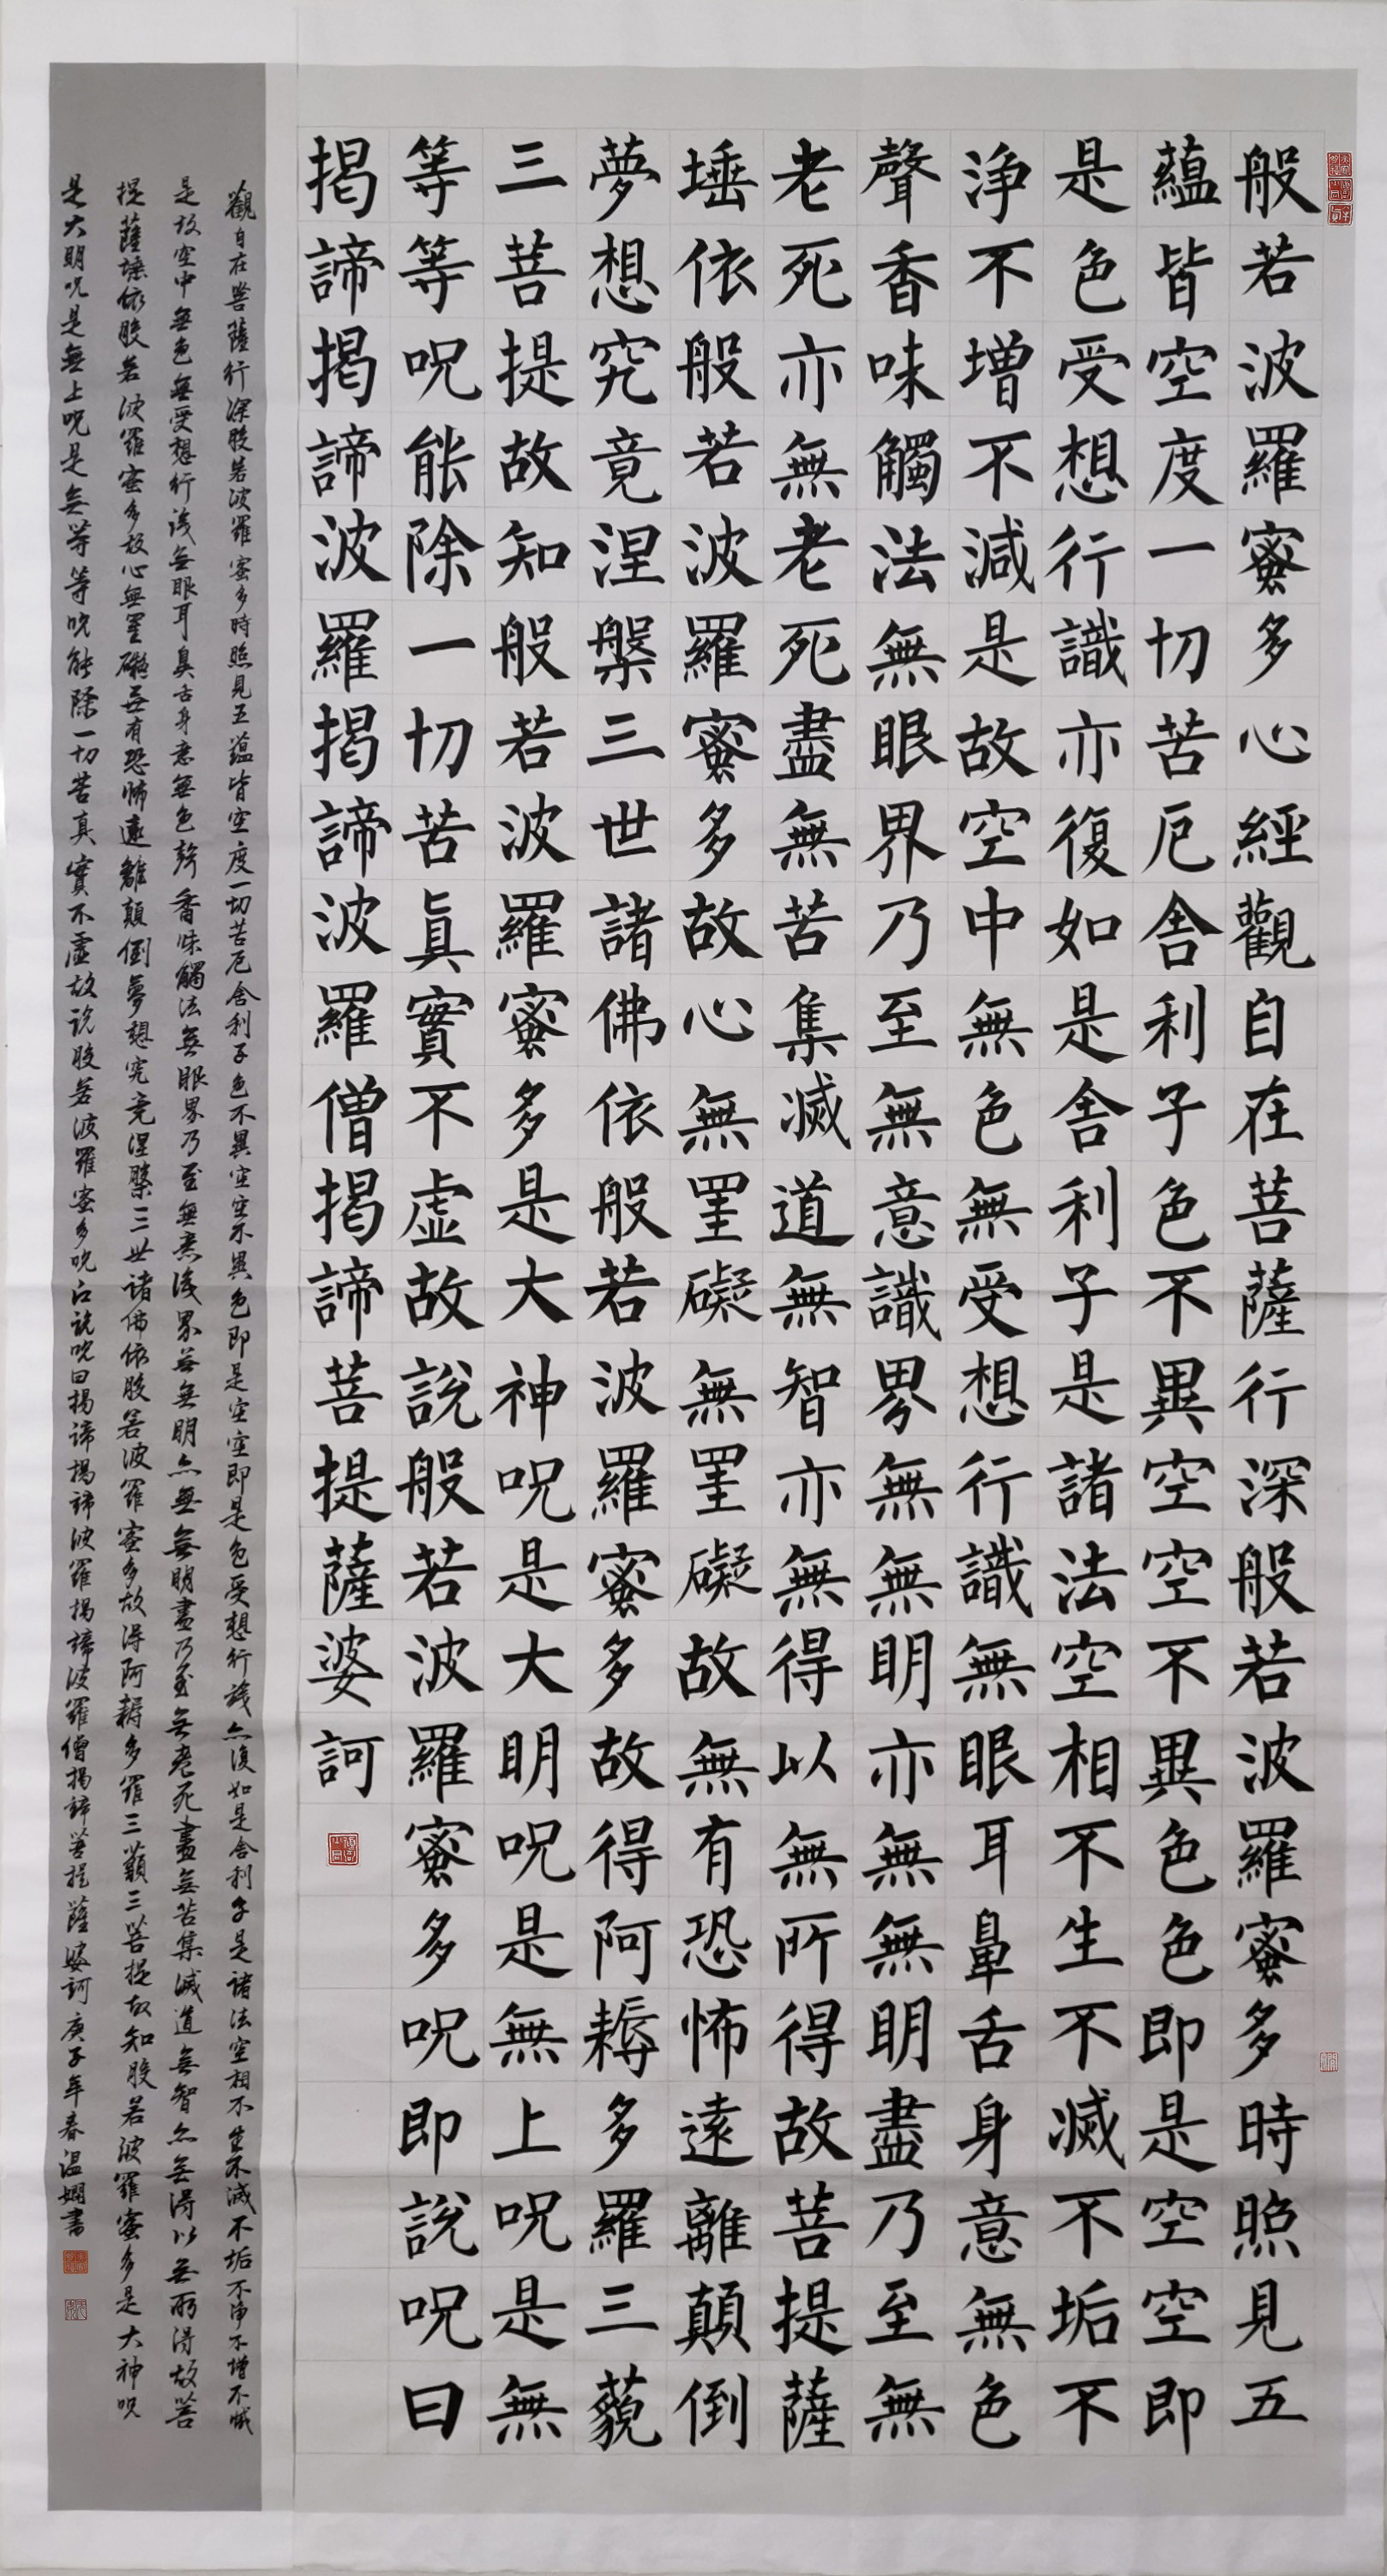 般若波羅蜜多心經觀自在菩薩行深般若波羅蜜多時照見五
蘊皆空度一切苦厄舍利子色不異空空不異色色即是空空即
是色受想行識亦復如是舍利子是諸法空相不生不滅不垢不
淨不增不減是故空中無色無受想行識無眼耳鼻舌身意無色
聲香味觸法無眼界乃至無意識界無無明亦無無明盡乃至無
老死亦無老死盡無苦集滅道無智亦無得以無所得故菩提薩
埵依般若波羅蜜多故心無罣礙無罣礙故無有恐怖遠離顛倒
夢想究竟涅槃三世諸佛依般若波羅蜜多故得阿耨多羅三藐
三菩提故知般若波羅蜜多是大神呪是大明呪是無上呪是無
等等呪能除一切苦真實不虛故說般若波羅蜜多呪即說呪曰
揭諦揭諦波羅揭諦波羅僧揭諦菩提薩婆訶
觀自在菩薩行深般若波羅蜜多時照見五蘊皆空度一切苦厄舍利子色不異空空不異色即是空空即是色受想行識亦復如是舍利子是諸法空相不生不滅不垢不淨不增不減
是故空中無色無受想行識無眼耳鼻舌身意無色聲香味觸法無眼界乃至無意識界無無明亦無無明盡乃至無老死盡無苦集滅道無智亦無得以無所得故菩
提薩埵依般若波羅蜜多故心無罣礙無有恐怖遠離顛倒夢想究竟涅槃三世諸佛依般若波羅蜜多故得阿耨多羅三藐三菩提故知般若波羅蜜多是大神呪
是大明呪是無上呪是無等等呪能除一切苦真實不虛故說般若波羅蜜多呪即說呪曰揭諦揭諦波羅揭諦波羅僧揭諦菩提薩婆訶庚子年春溫嫻書